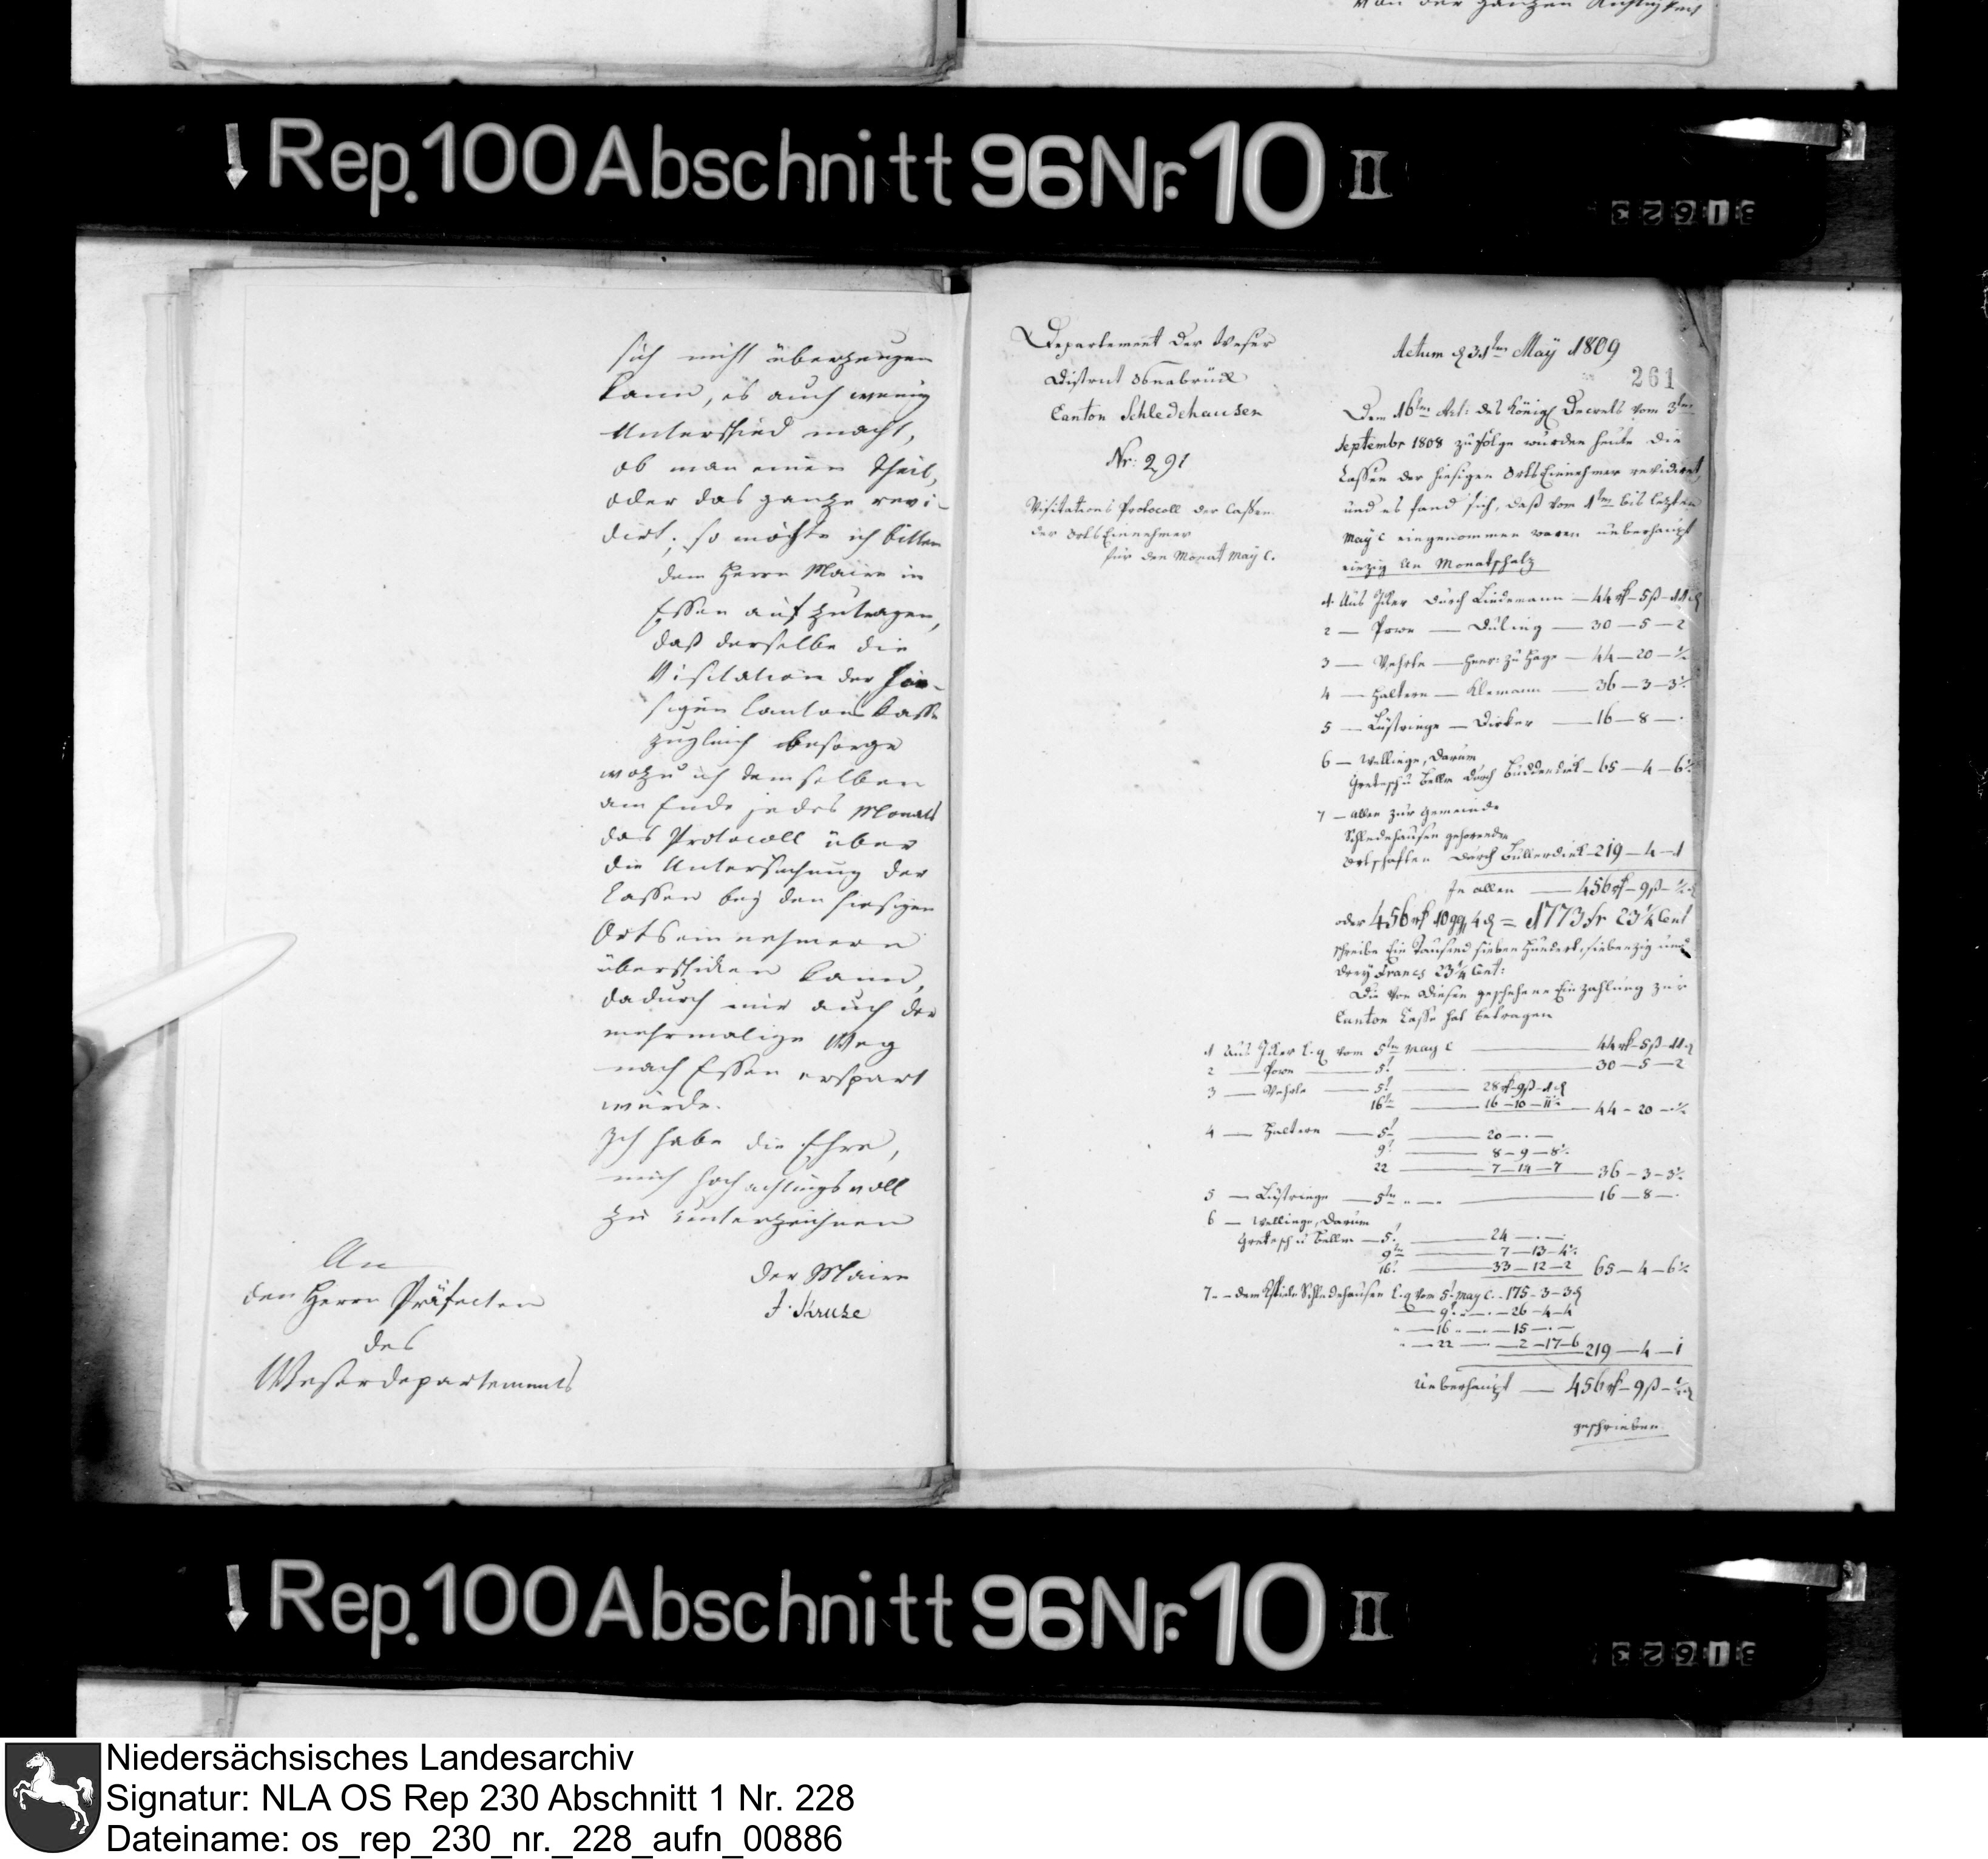 von der ganzen
Rep. 100 Abschnitt 96 Nr. 10 II
31623
sich nicht überzeugen
kann, es auch wenig
Unterschied macht,
ob man einen Theil,
oder das ganze revi-
dirt; so möchte ich bitten
dem Herrn Maire in
Essen aufzutragen,
daß derselbe die
Visitation der hie-
sigen Cantons Casse
zugleich besorge
wozu ich demselben
am Ende jedes Monats
das Protocoll über
die Untersuchung der
Cassen bey den hiesigen
Ortseinnehmern
überschicken kann,
dadurch mir auch der
mehrmalige Weg
nach Essen erspart
würde.
Ich habe die Ehre,
mich hochachtungsvoll
zu unterzeichnen
Der Maire
J. Kruse
An
den Herrn Präfecten
des
Weserdepartements
Departement der Weser
District Osnabrück
Canton Schledehausen
Nr: 291
Visitations Protocoll der Cassen
der Orts Einnehmer
für den Monat May c.
Actum d 31ten May 1809
261
Dem 16ten Art: des Königl Decrets vom 3ten
Septembr 1808 zufolge wurden heute die
Cassen der hiesigen Orts Einnehmer revidirt
und es fand sich, daß vom 1ten bis letzten
May c eingenommen waren überhaupt
einzig An Monatschatz
1. Aus Icker durch Lindemann — 44 rt — 5 ß — 11 d
2 — Powe — Düling — 30 — 5 — 2
3 — Vehrte — Henr: zu Hage — 44 — 20 — ½
4 — Haltern — Klemann — 36 — 3 — 3½
5 — Lüstringe — Dirker — 16 — 8 — .
6 — Wellinge, Darum
Gretesch u Bellm durch Buddendiek — 65 — 4 — 6½
7 — allen zur Gemeinde
Schledehausen gehörende
Ortschaften durch Büllerdiek — 219 — 4 — 1
In allen — 456 rt — 9 ß — ½ d
oder 456 rt 10 ggr 4 d = 1773 fr 23¼ Cent
schreibe Ein Tausend sieben Hundert, siebenzig und
drey Francs 23¼ Cent:
Die von diesen geschehene Einzahlung zur
Canton Casse hat betragen
1 aus Icker l. q vom 5ten May c — 44 rt — 5 ß — 11 d
2 — Powe — 5t — 30 — 5 — 2
3 — Vehrte — 5t — 28 rt — 9 ß — 1 d
16ten — 16 — 10 — 11½ — 44 — 20 — ½
4 — Haltern — 5t — 20 — . —
9t — 8 — 9 — 8½
22 — 7 — 14 — 7 — 36 — 3 — 3½
5 — Lüstringe — 5ten — 16 — 8 — .
6 — Wellinge, Darum
Gretesch u Bellm — 5t — 24 — . —
9ten — 7 — 13 — 4½
16t — 33 — 12 — 2 — 65 — 4 — 6½
7 — dem Kspiele Schledehausen l. q vom 5t May c. — 175 — 3 — 3 d
— 9t — 26 — 4 — 4
— 16 — 15 — . —
— 22 — 2 — 17 — 6 — 219 — 4 — 1
Ueberhaupt — 456 rt — 9 ß — ½ d
geschrieben
Rep. 100 Abschnitt 96 Nr. 10 II
31623
Niedersächsisches Landesarchiv
Signatur: NLA OS Rep 230 Abschnitt 1 Nr. 228
Dateiname: os_rep_230_nr._228_aufn_00886